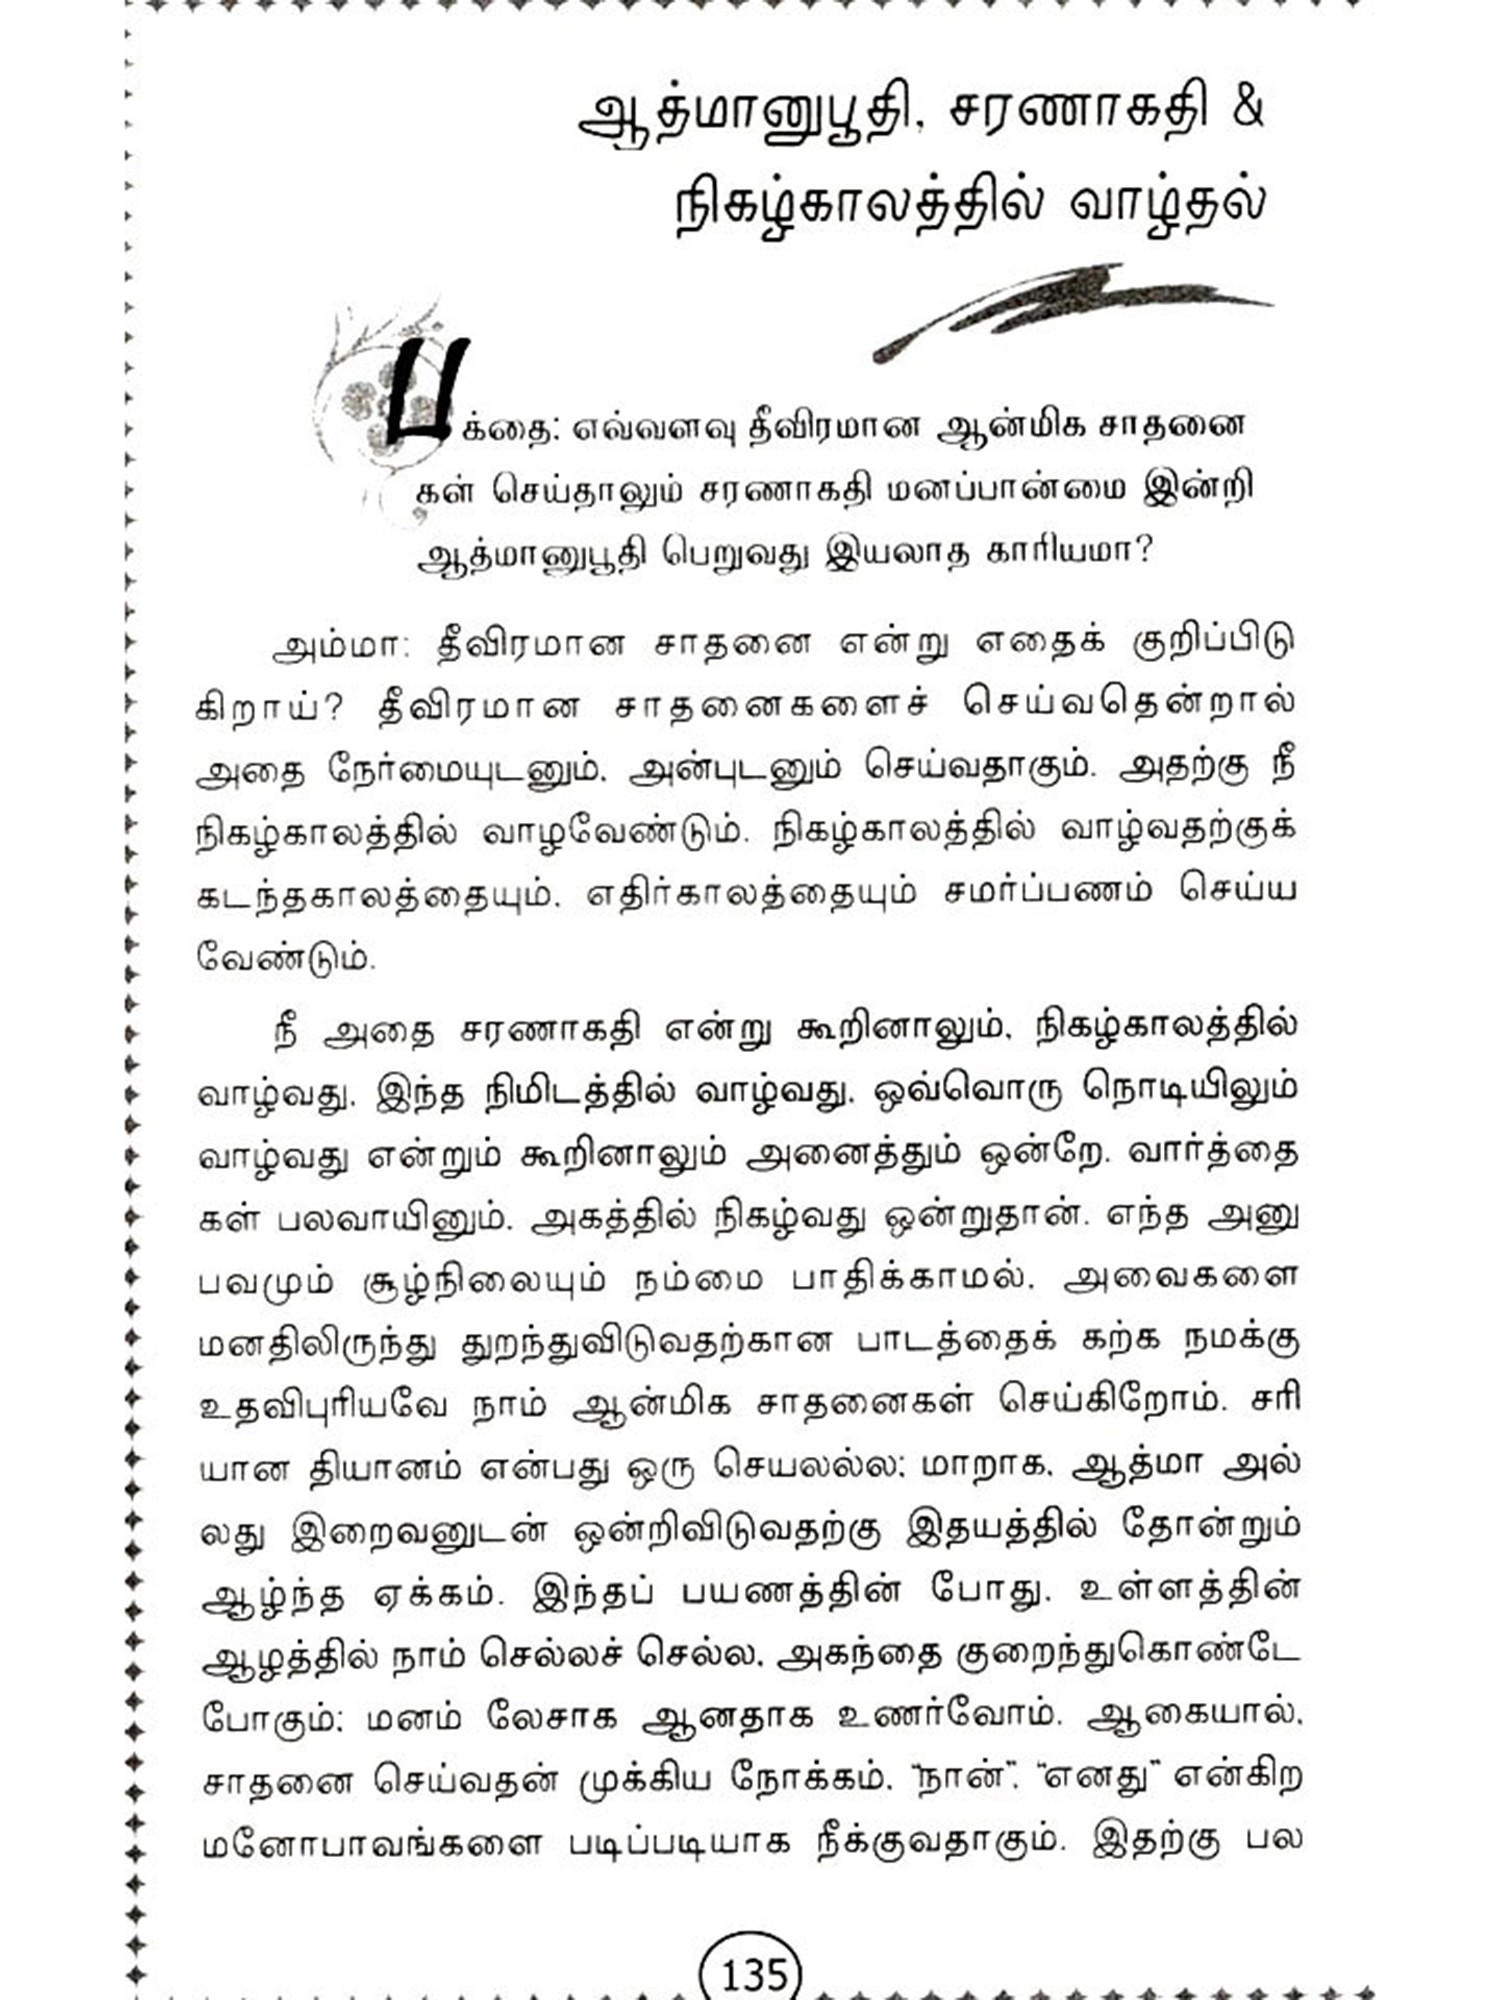 ஆத்மானுபூதி, சரணாகதி &
நிகழ்காலத்தில் வாழ்தல்
பக்தை: எவ்வளவு தீவிரமான ஆன்மிக சாதனை
கள் செய்தாலும் சரணாகதி மனப்பான்மை இன்றி
ஆத்மானுபூதி பெறுவது இயலாத காரியமா?
அம்மா: தீவிரமான சாதனை என்று எதைக் குறிப்பிடு
கிறாய்? தீவிரமான சாதனைகளைச் செய்வதென்றால்
அதை நேர்மையுடனும், அன்புடனும் செய்வதாகும். அதற்கு நீ
நிகழ்காலத்தில் வாழவேண்டும். நிகழ்காலத்தில் வாழ்வதற்குக்
கடந்தகாலத்தையும், எதிர்காலத்தையும் சமர்ப்பணம் செய்ய
வேண்டும்.
நீ அதை சரணாகதி என்று கூறினாலும், நிகழ்காலத்தில்
வாழ்வது, இந்த நிமிடத்தில் வாழ்வது, ஒவ்வொரு நொடியிலும்
வாழ்வது என்றும் கூறினாலும் அனைத்தும் ஒன்றே. வார்த்தை
கள் பலவாயினும், அகத்தில் நிகழ்வது ஒன்றுதான். எந்த அனு
பவமும் சூழ்நிலையும் நம்மை பாதிக்காமல், அவைகளை
மனதிலிருந்து துறந்துவிடுவதற்கான பாடத்தைக் கற்க நமக்கு
உதவிபுரியவே நாம் ஆன்மிக சாதனைகள் செய்கிறோம். சரி
யான தியானம் என்பது ஒரு செயலல்ல; மாறாக, ஆத்மா அல்
லது இறைவனுடன் ஒன்றிவிடுவதற்கு இதயத்தில் தோன்றும்
ஆழ்ந்த ஏக்கம். இந்தப் பயணத்தின் போது, உள்ளத்தின்
ஆழத்தில் நாம் செல்லச் செல்ல, அகந்தை குறைந்துகொண்டே
போகும்; மனம் லேசாக ஆனதாக உணர்வோம். ஆகையால்,
சாதனை செய்வதன் முக்கிய நோக்கம், "நான்", "எனது" என்கிற
மனோபாவங்களை படிப்படியாக நீக்குவதாகும். இதற்கு பல
135